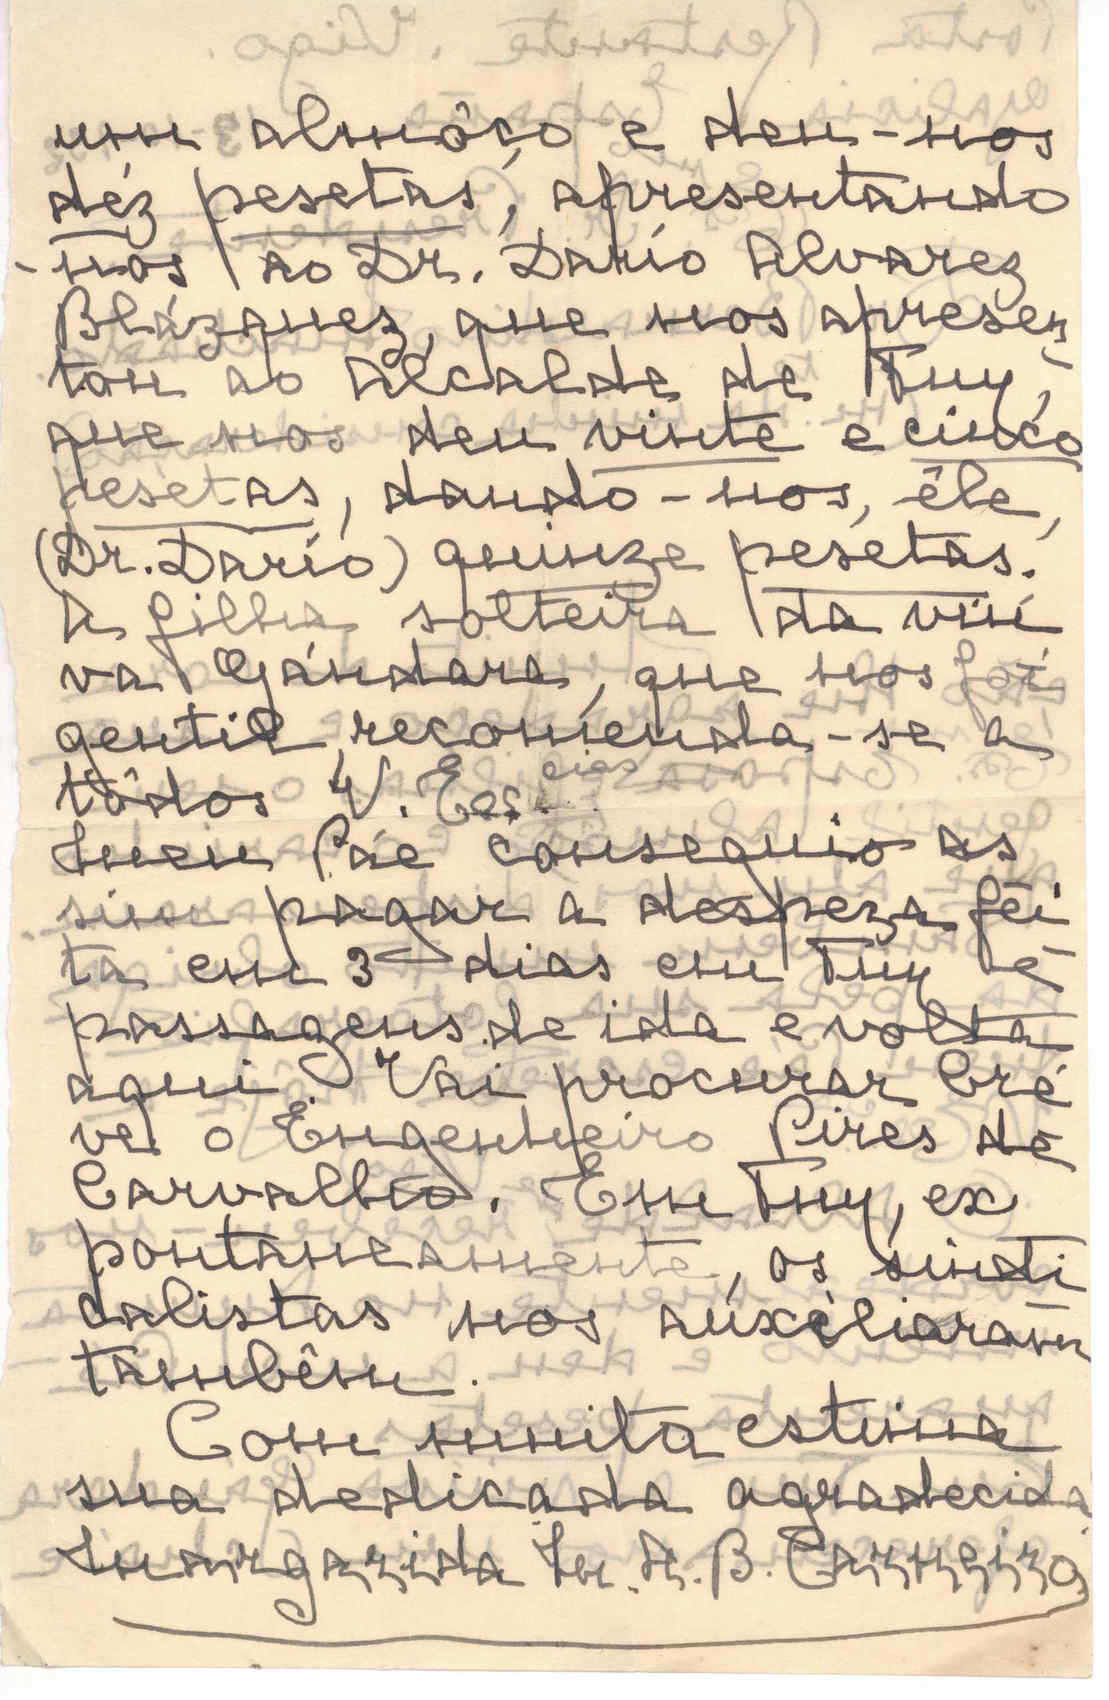 um almôço e deu-nos
déz pesetas, apresentando
-nos ao Dr. Darío Alvarez
Blázquez, que nos apresen
tou ao Alcalde de Tuy,
que nos deu vinte e cinco
pesetas, dando-nos, êle,
(Dr. Darío) quinze pesetas.
A filha solteira da viú
va Gándara, que nos foi
gentil, recomenda-se a
tôdos V. Exas cias
Meu Páe conseguio as
sim pagar a despeza fei
ta em 3 dias em Tuy e
passagens de ida e volta
aqui. Vai procurar bré
ve o Engenheiro Pires de
Carvalho. Em Tuy, ex
pontaneamente, os sindi
calistas nos auxéliaram
também.
Com muita estima
sua dedicada agradecida
Margarida M. A. B. Carneiro